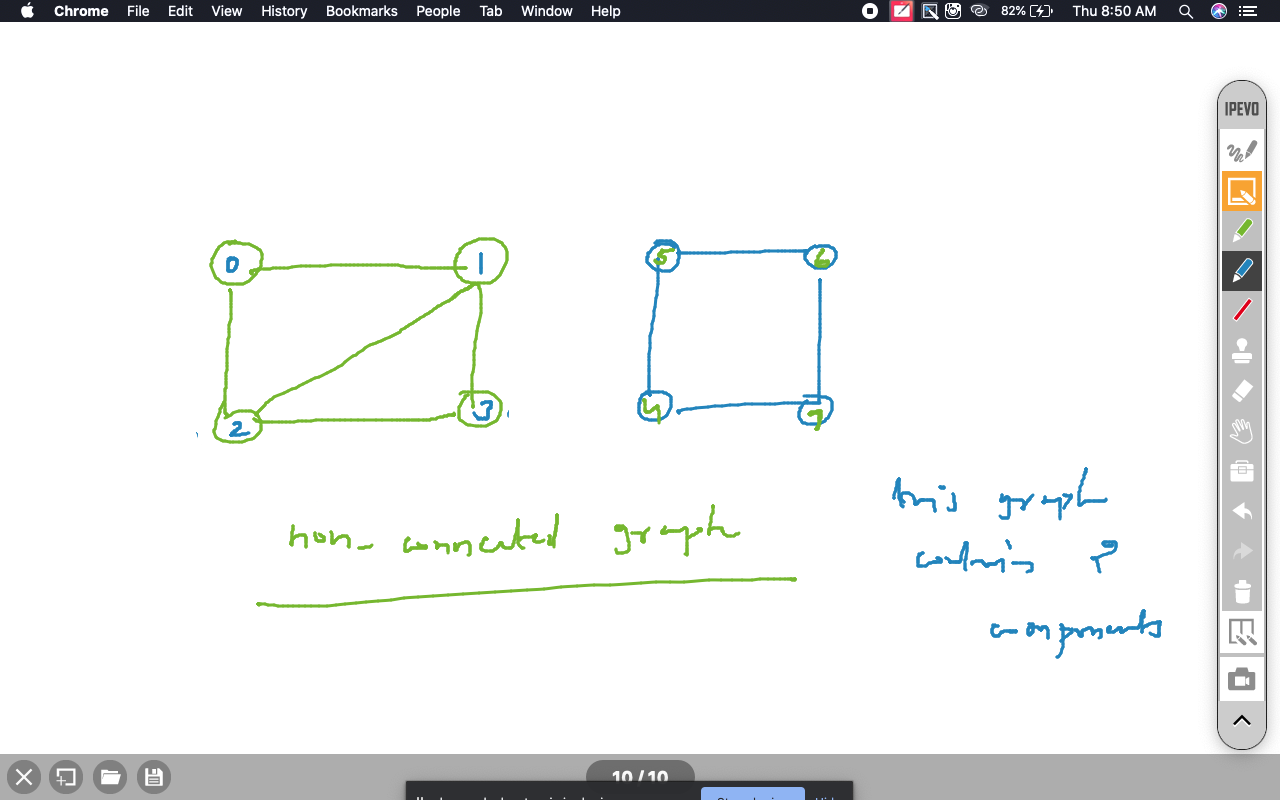 Chrome File Edit View History Bookmarks People Tab Window Help 82% Thu 8:50 AM
IPEVO
0 1 5 6
2 3 4 7
non-connected graph
this graph
contains 2
components
10/10